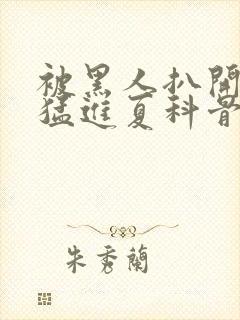 被黑人扒開
猛進夏科骨
朱秀蘭